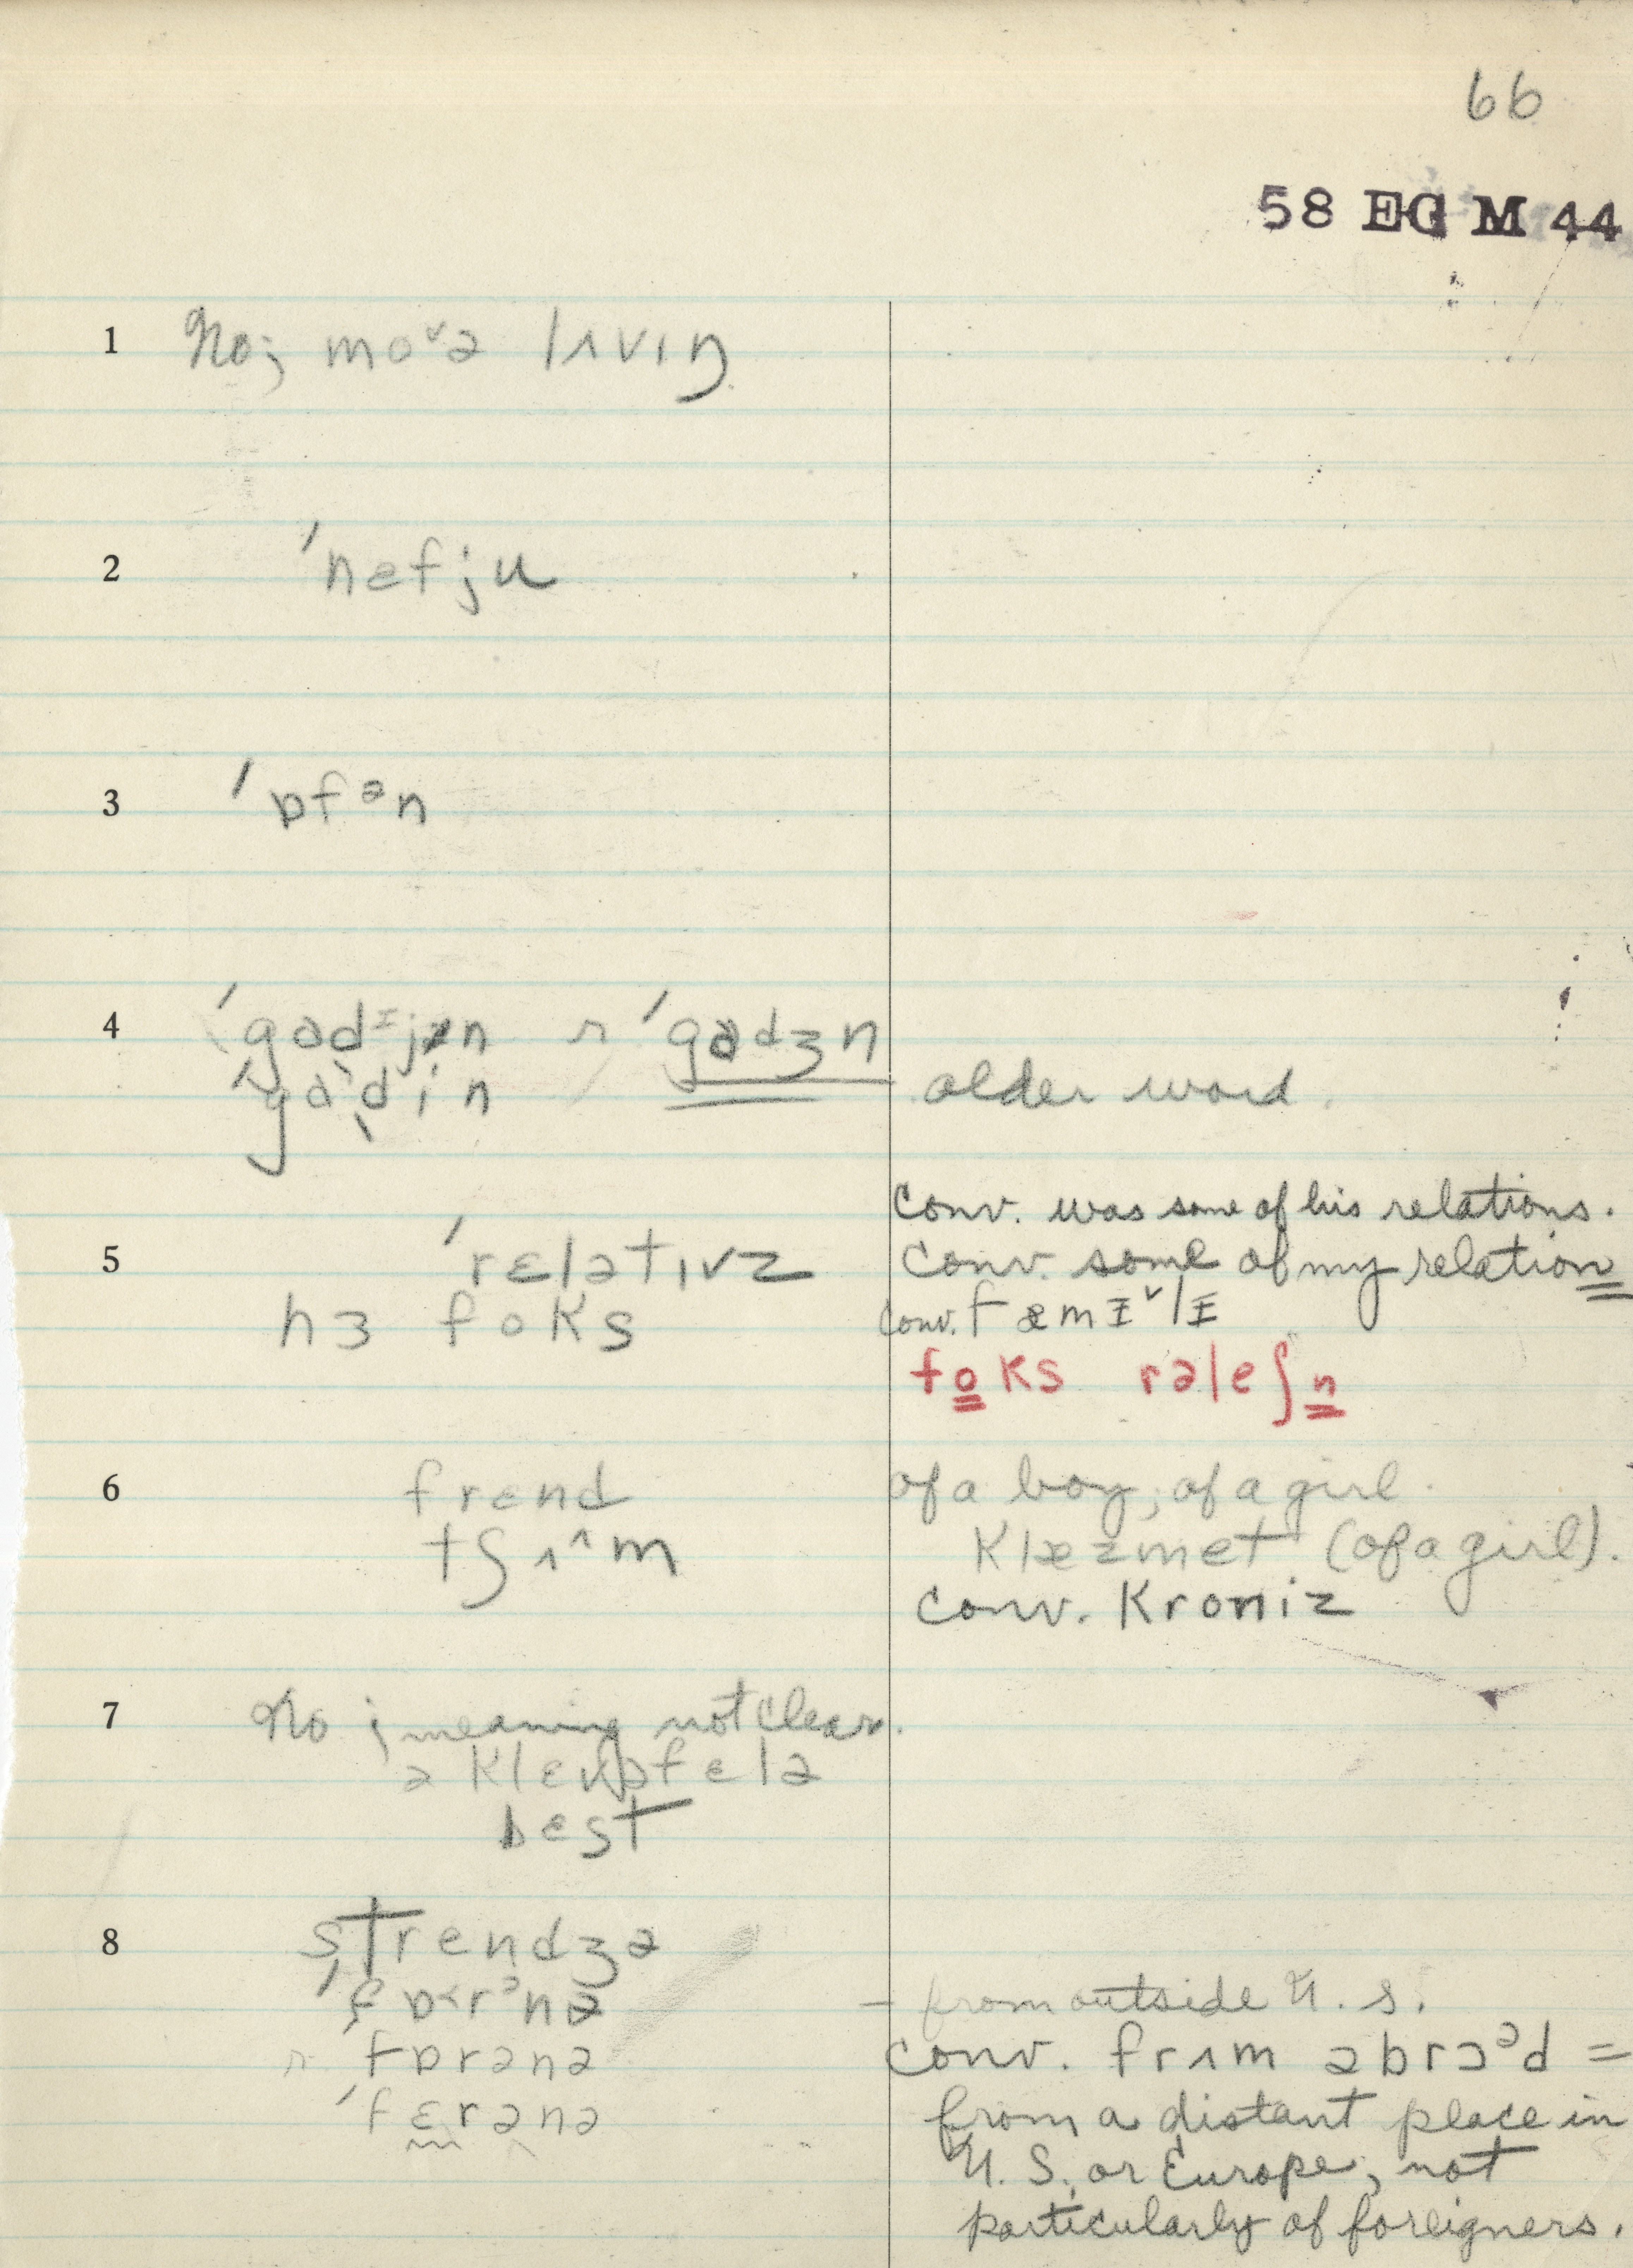 66
58 EG M 44
1 No; moˇə lɪvɪŋ
2 ˈnefju
3 ˈɒfᵊn
4 ˈgɑdɪjən r ˈgɑdʒn
ˈgɑdin older word.
Conv. was some of his relations.
5 ˈrɛlətɪvz Conv. some of my relation
hɜ foks Conv. fæmɪˇlɪ
foks rəleʃn
6 frend of a boy; of a girl.
tʃʌ^m klæzmet (of a girl).
conv. kroniz
7 No; meaning not clear.
ə klɛvə fɛlə
best
8 strendʒə
ˈfɒ˂rᵊnə – from outside U. S.
r ˈfɒrənə conv. frʌm əbrɔᵊd =
ˈfɛrənə from a distant place in
U. S. or Europe, not
particularly of foreigners.